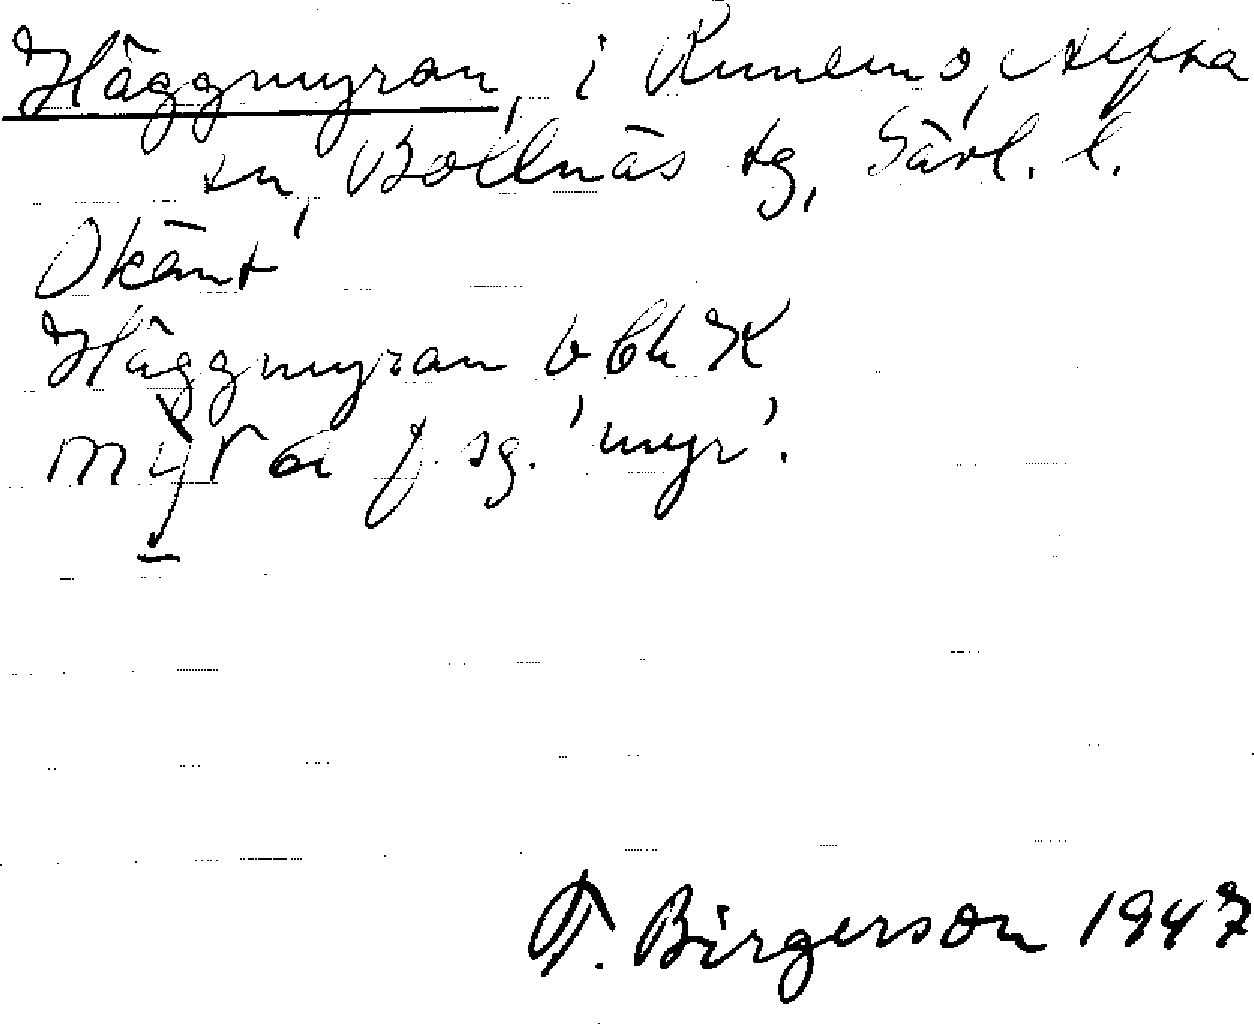 Häggmyran, i Runemo, Alfta
sn, Bollnäs tg, Gävl. l.
Okänt
Häggmyran
myra f. sg. 'myr'.
T. Birgerson 1947